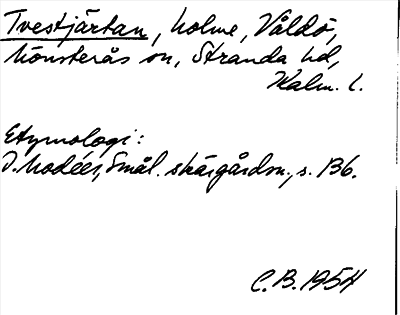 Tvestjärtan, holme, Våldö,
Mönsterås sn, Stranda hd,
Kalm. l.
Etymologi:
I. Modéer, Smål. skärgårdsn., s. 136.
C.B. 1954